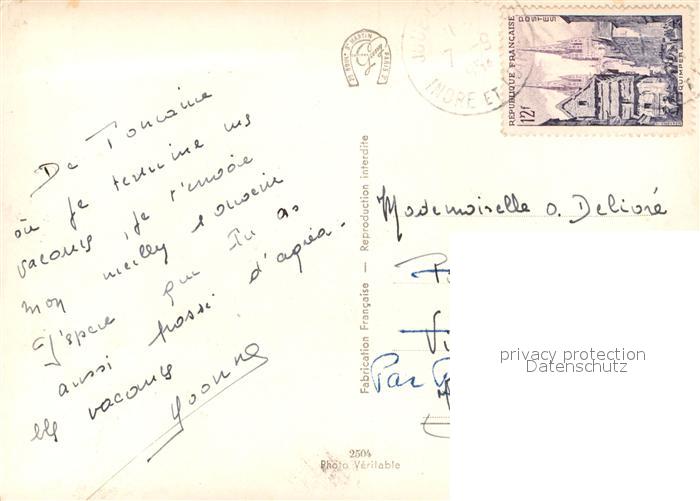 De Touraine
où je termine mes
vacances, je t'envoie
mon meilleur souvenir
J'espère que tu as
aussi passé d'agréa-
bles vacances
Yvonne
Bd BONNE
ST MARTIN
PARIS
INDRE ET
RÉPUBLIQUE FRANÇAISE
POSTES
12f
QUIMPER
Fabrication Française — Reproduction interdite
Mademoiselle O. Delivré
Par
privacy protection
Datenschutz
2504
Photo Véritable